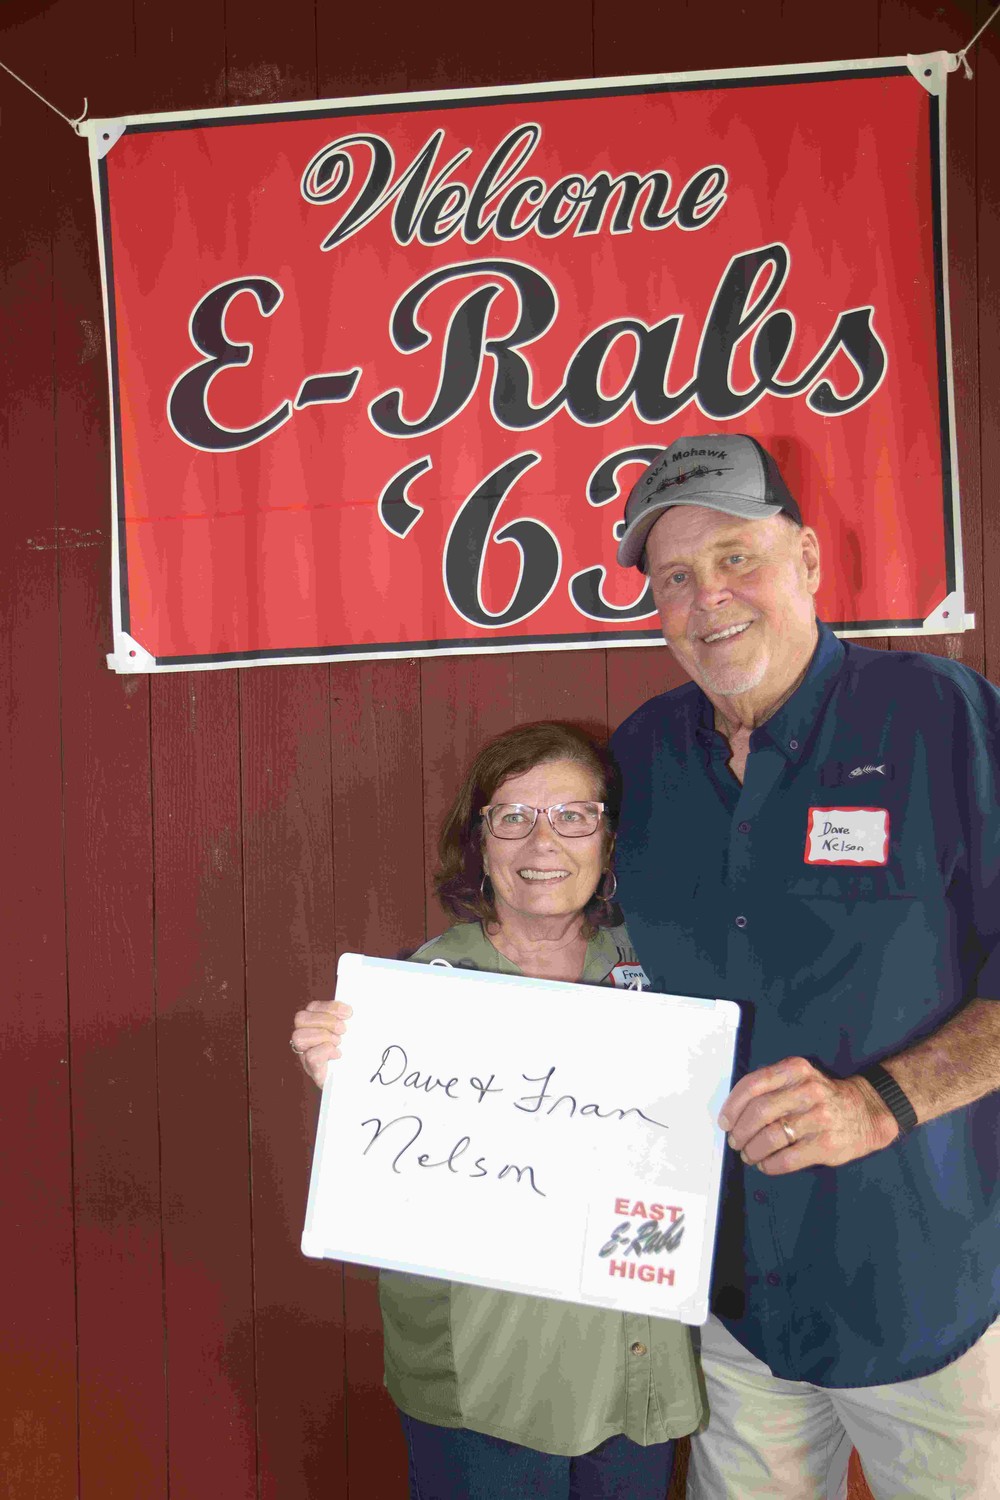 Welcome
E-Rabs
'63
OV-1 Mohawk
Dave
Nelson
Fran
Dave & Fran
Nelson
EAST
E-Rabs
HIGH